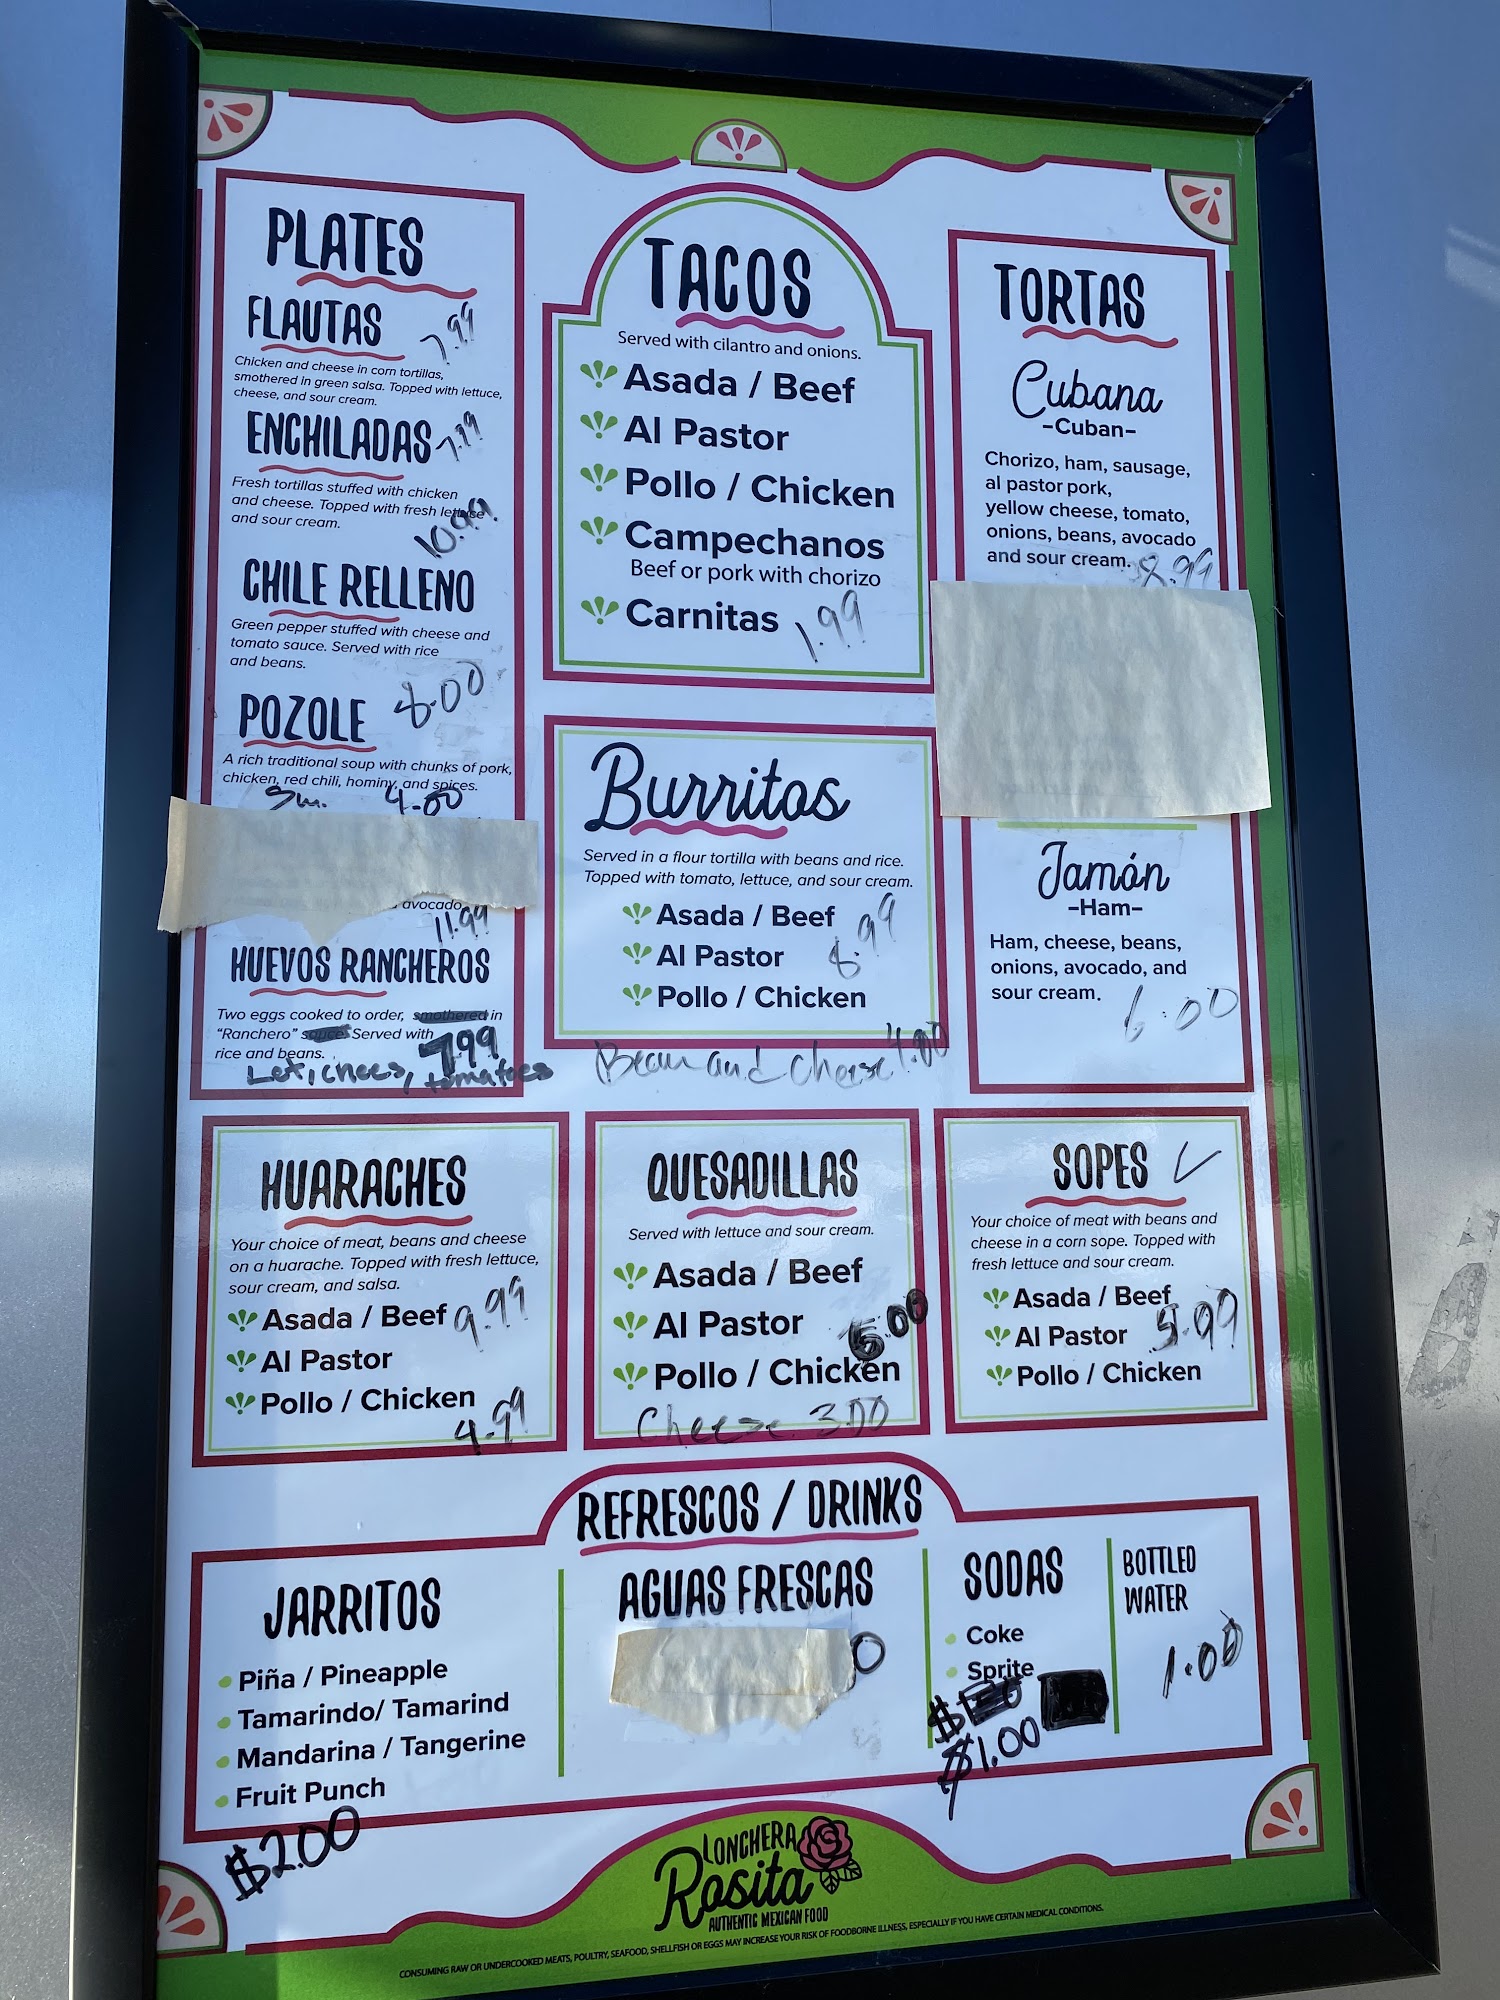 PLATES
FLAUTAS 7.99
Chicken and cheese in corn tortillas,
smothered in green salsa. Topped with lettuce,
cheese, and sour cream.
ENCHILADAS 7.99
Fresh tortillas stuffed with chicken
and cheese. Topped with fresh lettuce
and sour cream.
10.99
CHILE RELLENO
Green pepper stuffed with cheese and
tomato sauce. Served with rice
and beans.
POZOLE 8.00
A rich traditional soup with chunks of pork,
chicken, red chili, hominy, and spices.
Sm. 4.00
avocado
11.99
HUEVOS RANCHEROS
Two eggs cooked to order, smothered in
"Ranchero" sauce. Served with
rice and beans. 7.99
Let, chees, tomatoes
TACOS
Served with cilantro and onions.
Asada / Beef
Al Pastor
Pollo / Chicken
Campechanos
Beef or pork with chorizo
Carnitas 1.99
Burritos
Served in a flour tortilla with beans and rice.
Topped with tomato, lettuce, and sour cream.
Asada / Beef
Al Pastor 8.99
Pollo / Chicken
Bean and cheese 4.00
TORTAS
Cubana
-Cuban-
Chorizo, ham, sausage,
al pastor pork,
yellow cheese, tomato,
onions, beans, avocado
and sour cream. 8.99
Jamón
-Ham-
Ham, cheese, beans,
onions, avocado, and
sour cream. 6.00
HUARACHES
Your choice of meat, beans and cheese
on a huarache. Topped with fresh lettuce,
sour cream, and salsa.
Asada / Beef 9.99
Al Pastor
Pollo / Chicken
4.99
QUESADILLAS
Served with lettuce and sour cream.
Asada / Beef
Al Pastor 6.00
Pollo / Chicken
Cheese 3.00
SOPES
Your choice of meat with beans and
cheese in a corn sope. Topped with
fresh lettuce and sour cream.
Asada / Beef
Al Pastor 5.99
Pollo / Chicken
REFRESCOS / DRINKS
JARRITOS
Piña / Pineapple
Tamarindo/ Tamarind
Mandarina / Tangerine
Fruit Punch
$2.00
AGUAS FRESCAS
0
SODAS
Coke
Sprite
$1.00
BOTTLED
WATER
1.00
LONCHERA
Rosita
AUTHENTIC MEXICAN FOOD
CONSUMING RAW OR UNDERCOOKED MEATS, POULTRY, SEAFOOD, SHELLFISH OR EGGS MAY INCREASE YOUR RISK OF FOODBORNE ILLNESS, ESPECIALLY IF YOU HAVE CERTAIN MEDICAL CONDITIONS.